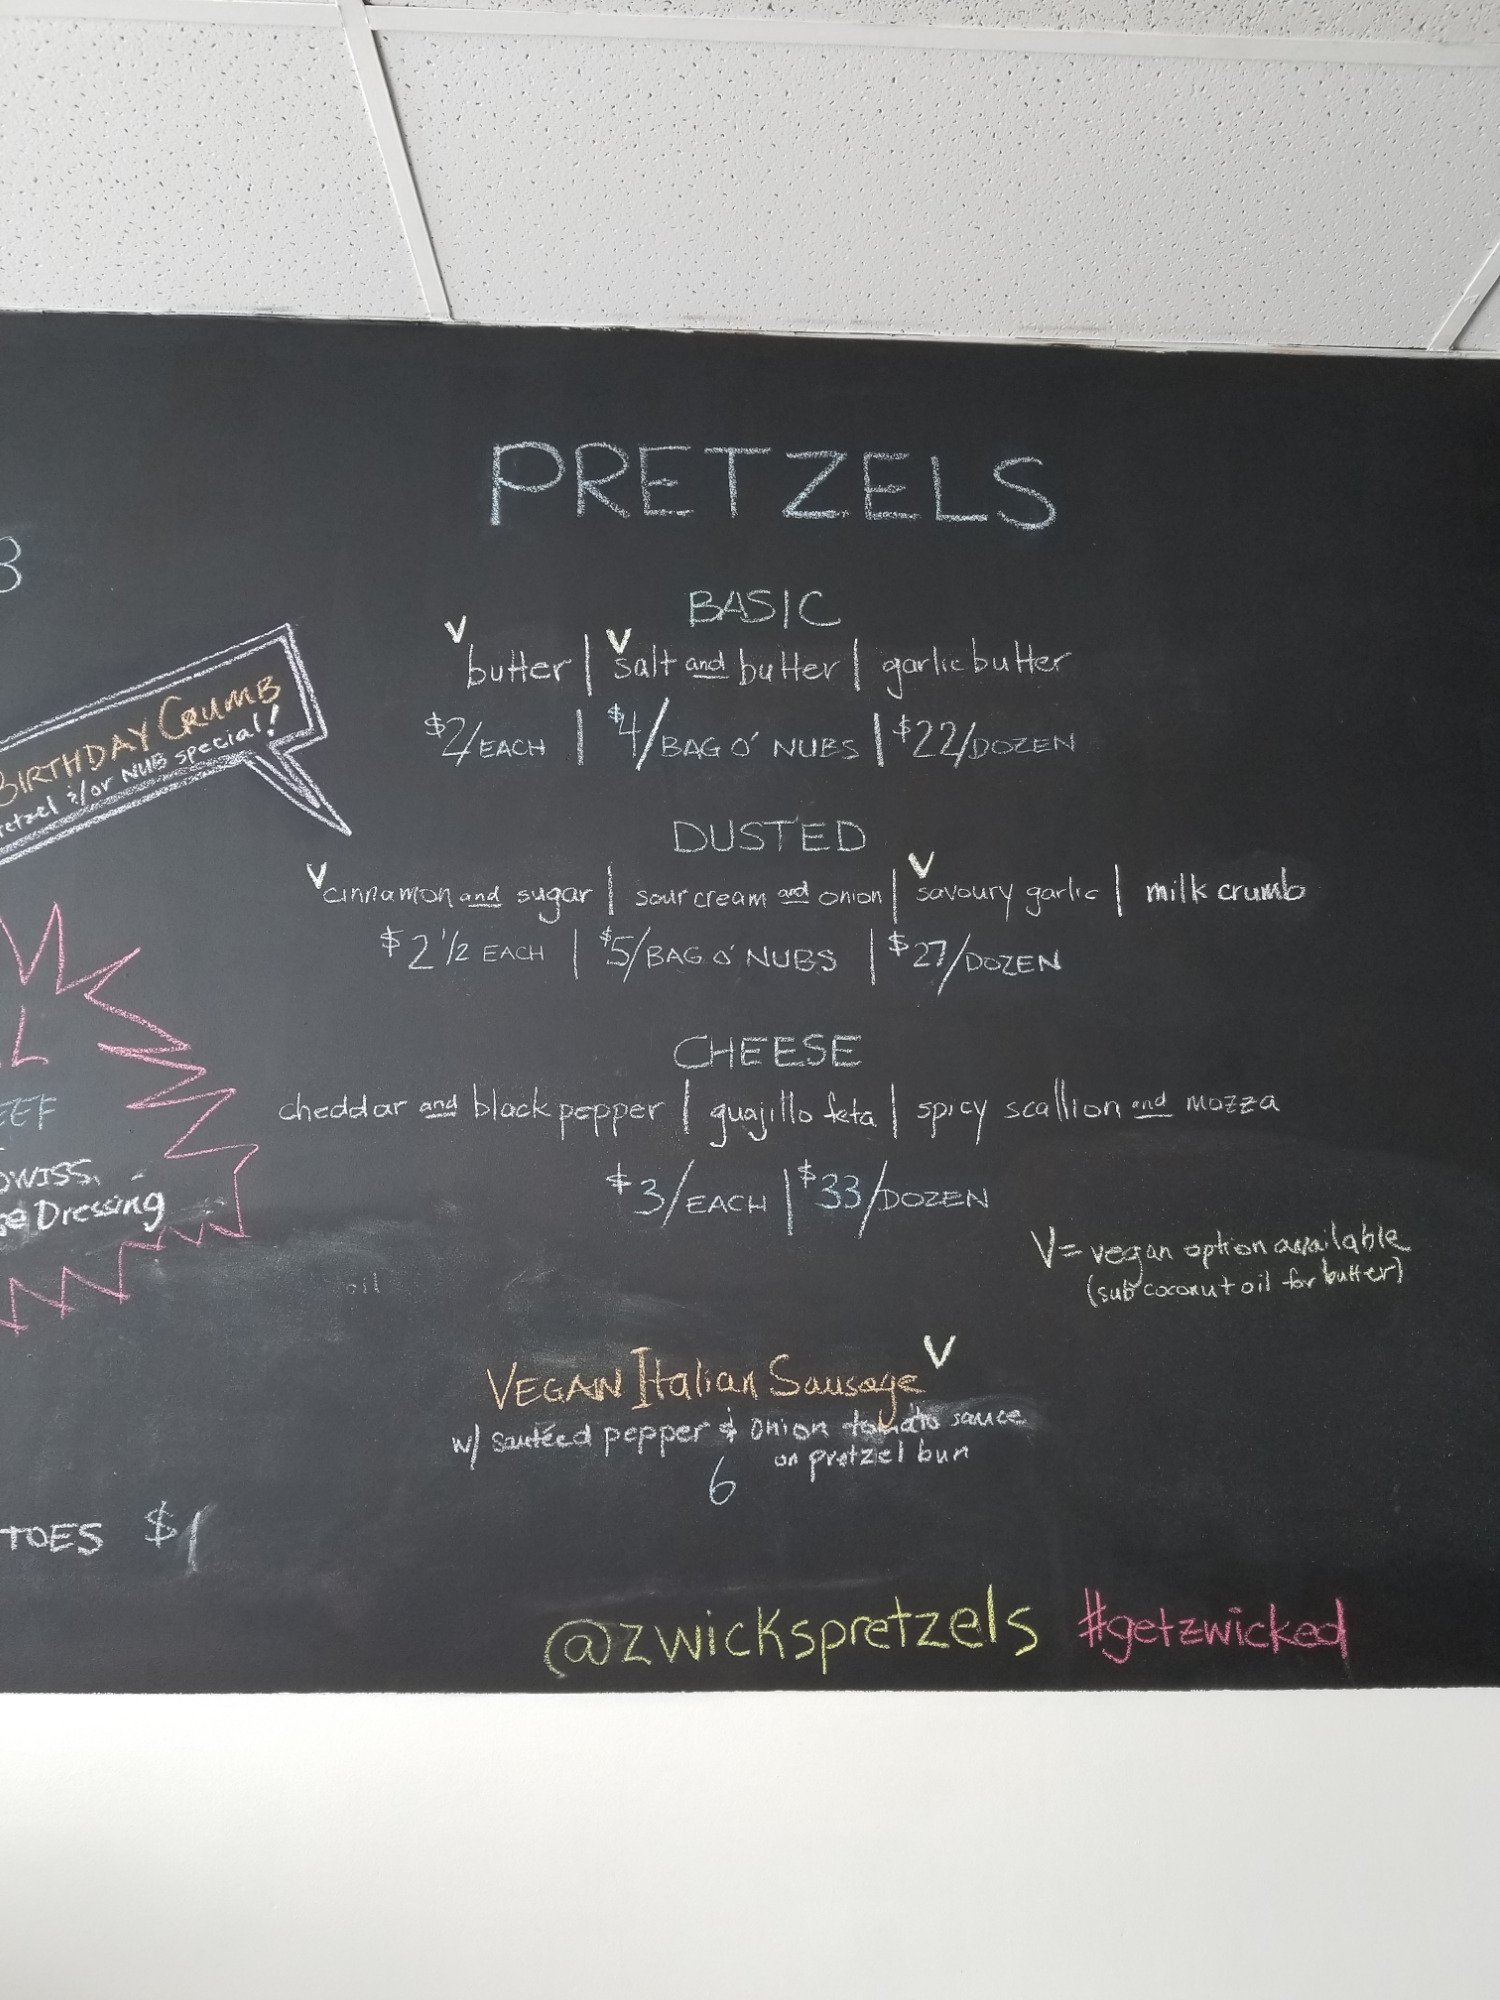 PRETZELS
BASIC
V butter | V salt and butter | garlic butter
$2/EACH | $4/BAG O' NUBS | $22/DOZEN
BIRTHDAY CRUMB
pretzel &/or NUB special!
DUSTED
V cinnamon and sugar | sour cream and onion | V savoury garlic | milk crumb
$2 1/2 EACH | $5/BAG O' NUBS | $27/DOZEN
CHEESE
cheddar and black pepper | guajillo feta | spicy scallion and mozza
$3/EACH | $33/DOZEN
V = vegan option available
(sub coconut oil for butter)
SWISS,
Dressing
oil
VEGAN Italian Sausage V
w/ sautéed pepper & onion tomato sauce
on pretzel bun
6
TOES $1
@zwickspretzels #getzwicked